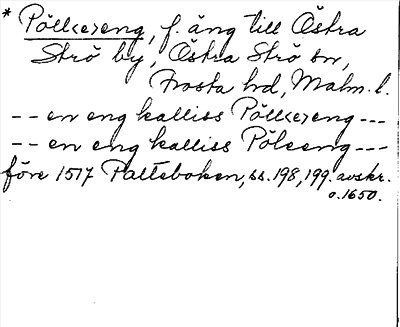 * Pöll(e)eng, f. äng till Östra
Strö by, Östra Strö sn,
Frosta hd, Malm. l.
-- en eng kalliss Pöll(e)eng ---
-- en eng kalliss Pöleeng ---
före 1517 Palteboken, ss. 198, 199. avskr.
o. 1650.